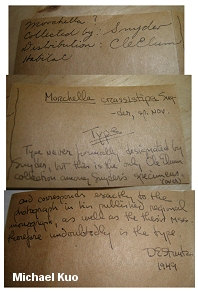 Morchella ?
Collected by: Snyder
Distribution: Cle Elum
Habitat
Morchella crassistipa Sny-
der, sp. nov.
Type
Type never formally designated by
Snyder, but this is the only Cle Elum
collection among Snyder's specimens.
and corresponds exactly to the
photograph in his published regional
monograph, as well as the thesis mss.
therefore undoubtedly is the type.
D E Stuntz
1949
Michael Kuo